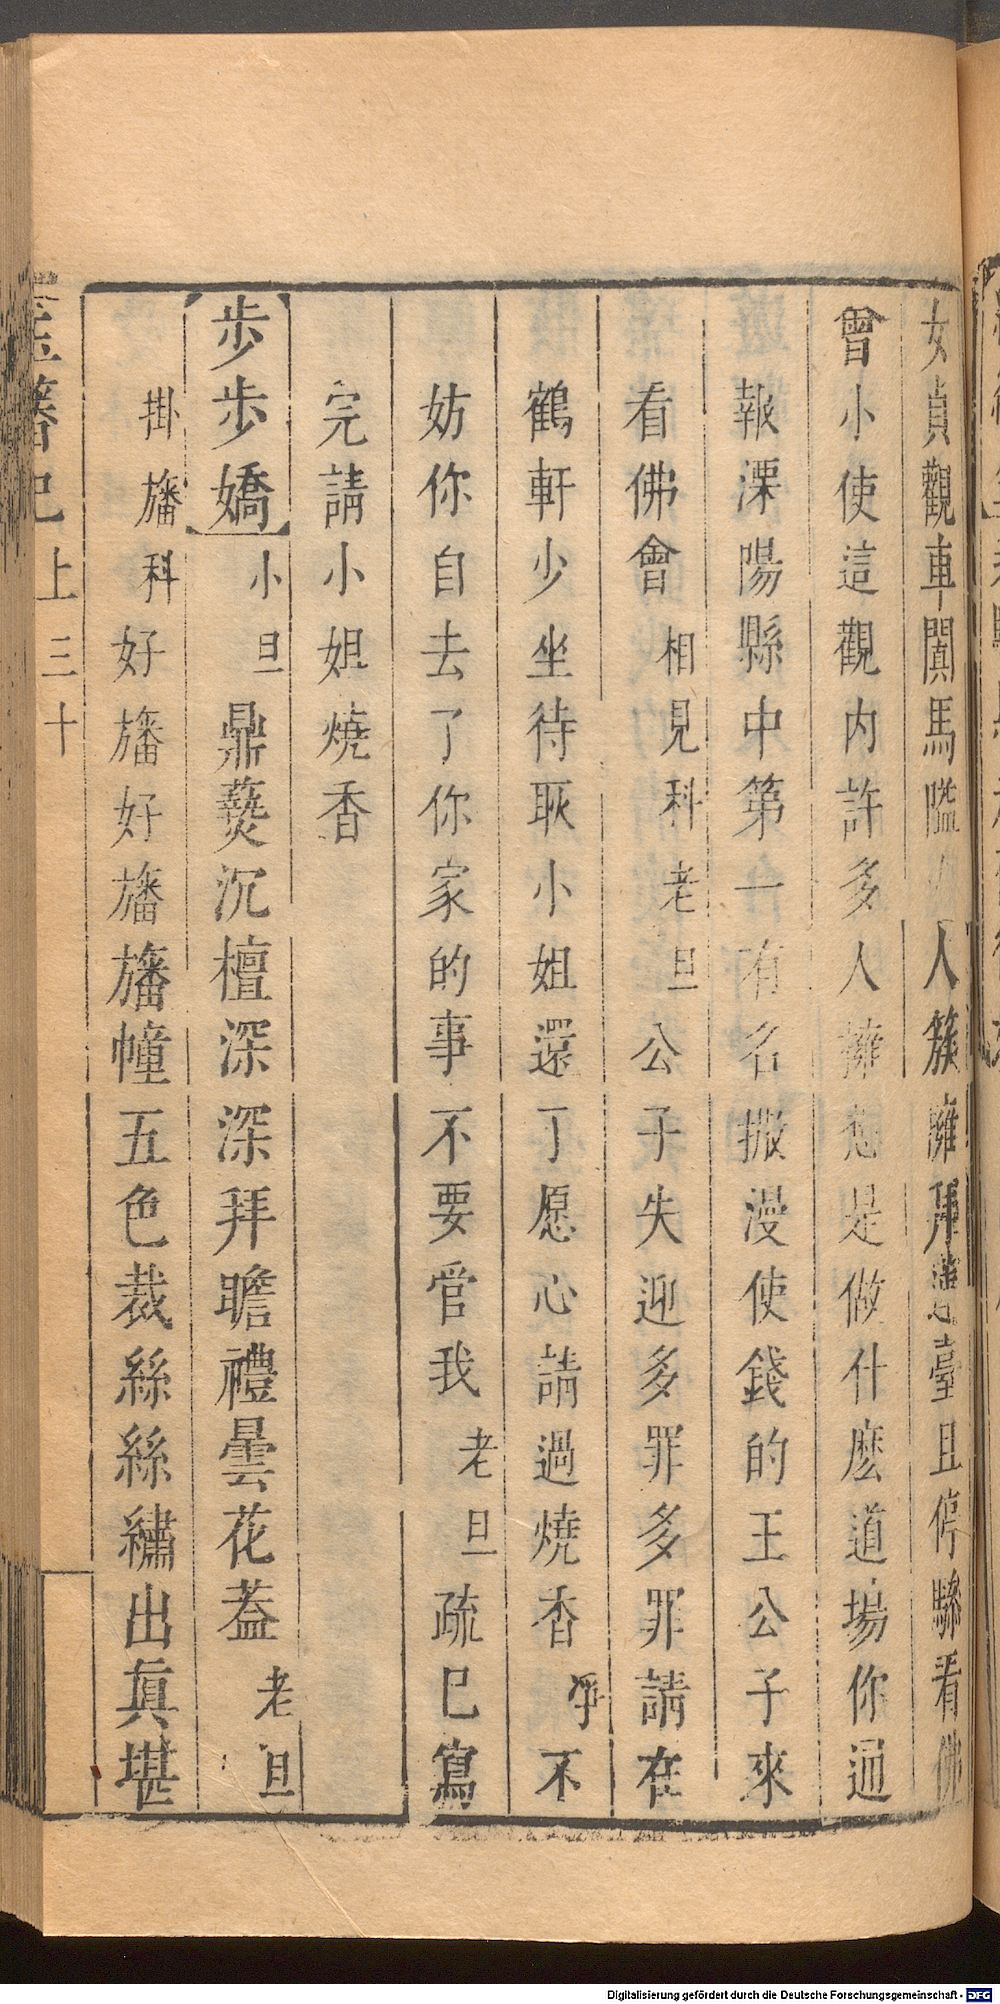 女貞觀車闐馬隘人簇擁拜蓮臺且停驂看佛
會小使這觀内許多人擁怱是做什麽道場你通
報溧陽縣中第一有名撒漫使錢的王公子來
看佛會相見科老旦公子失迎多罪多罪請在
鶴軒少坐待耿小姐還了愿心請過燒香净不
妨你自去了你家的事不要管我老旦疏巳寫
完請小姐燒香
步步嬌小旦鼎爇沉檀深深拜瞻禮曇花葢老旦
掛旛科好旛好旛旛幢五色裁絲絲繡出真堪
玉簪記 上 三十
Digitalisierung gefördert durch die Deutsche Forschungsgemeinschaft - DFG